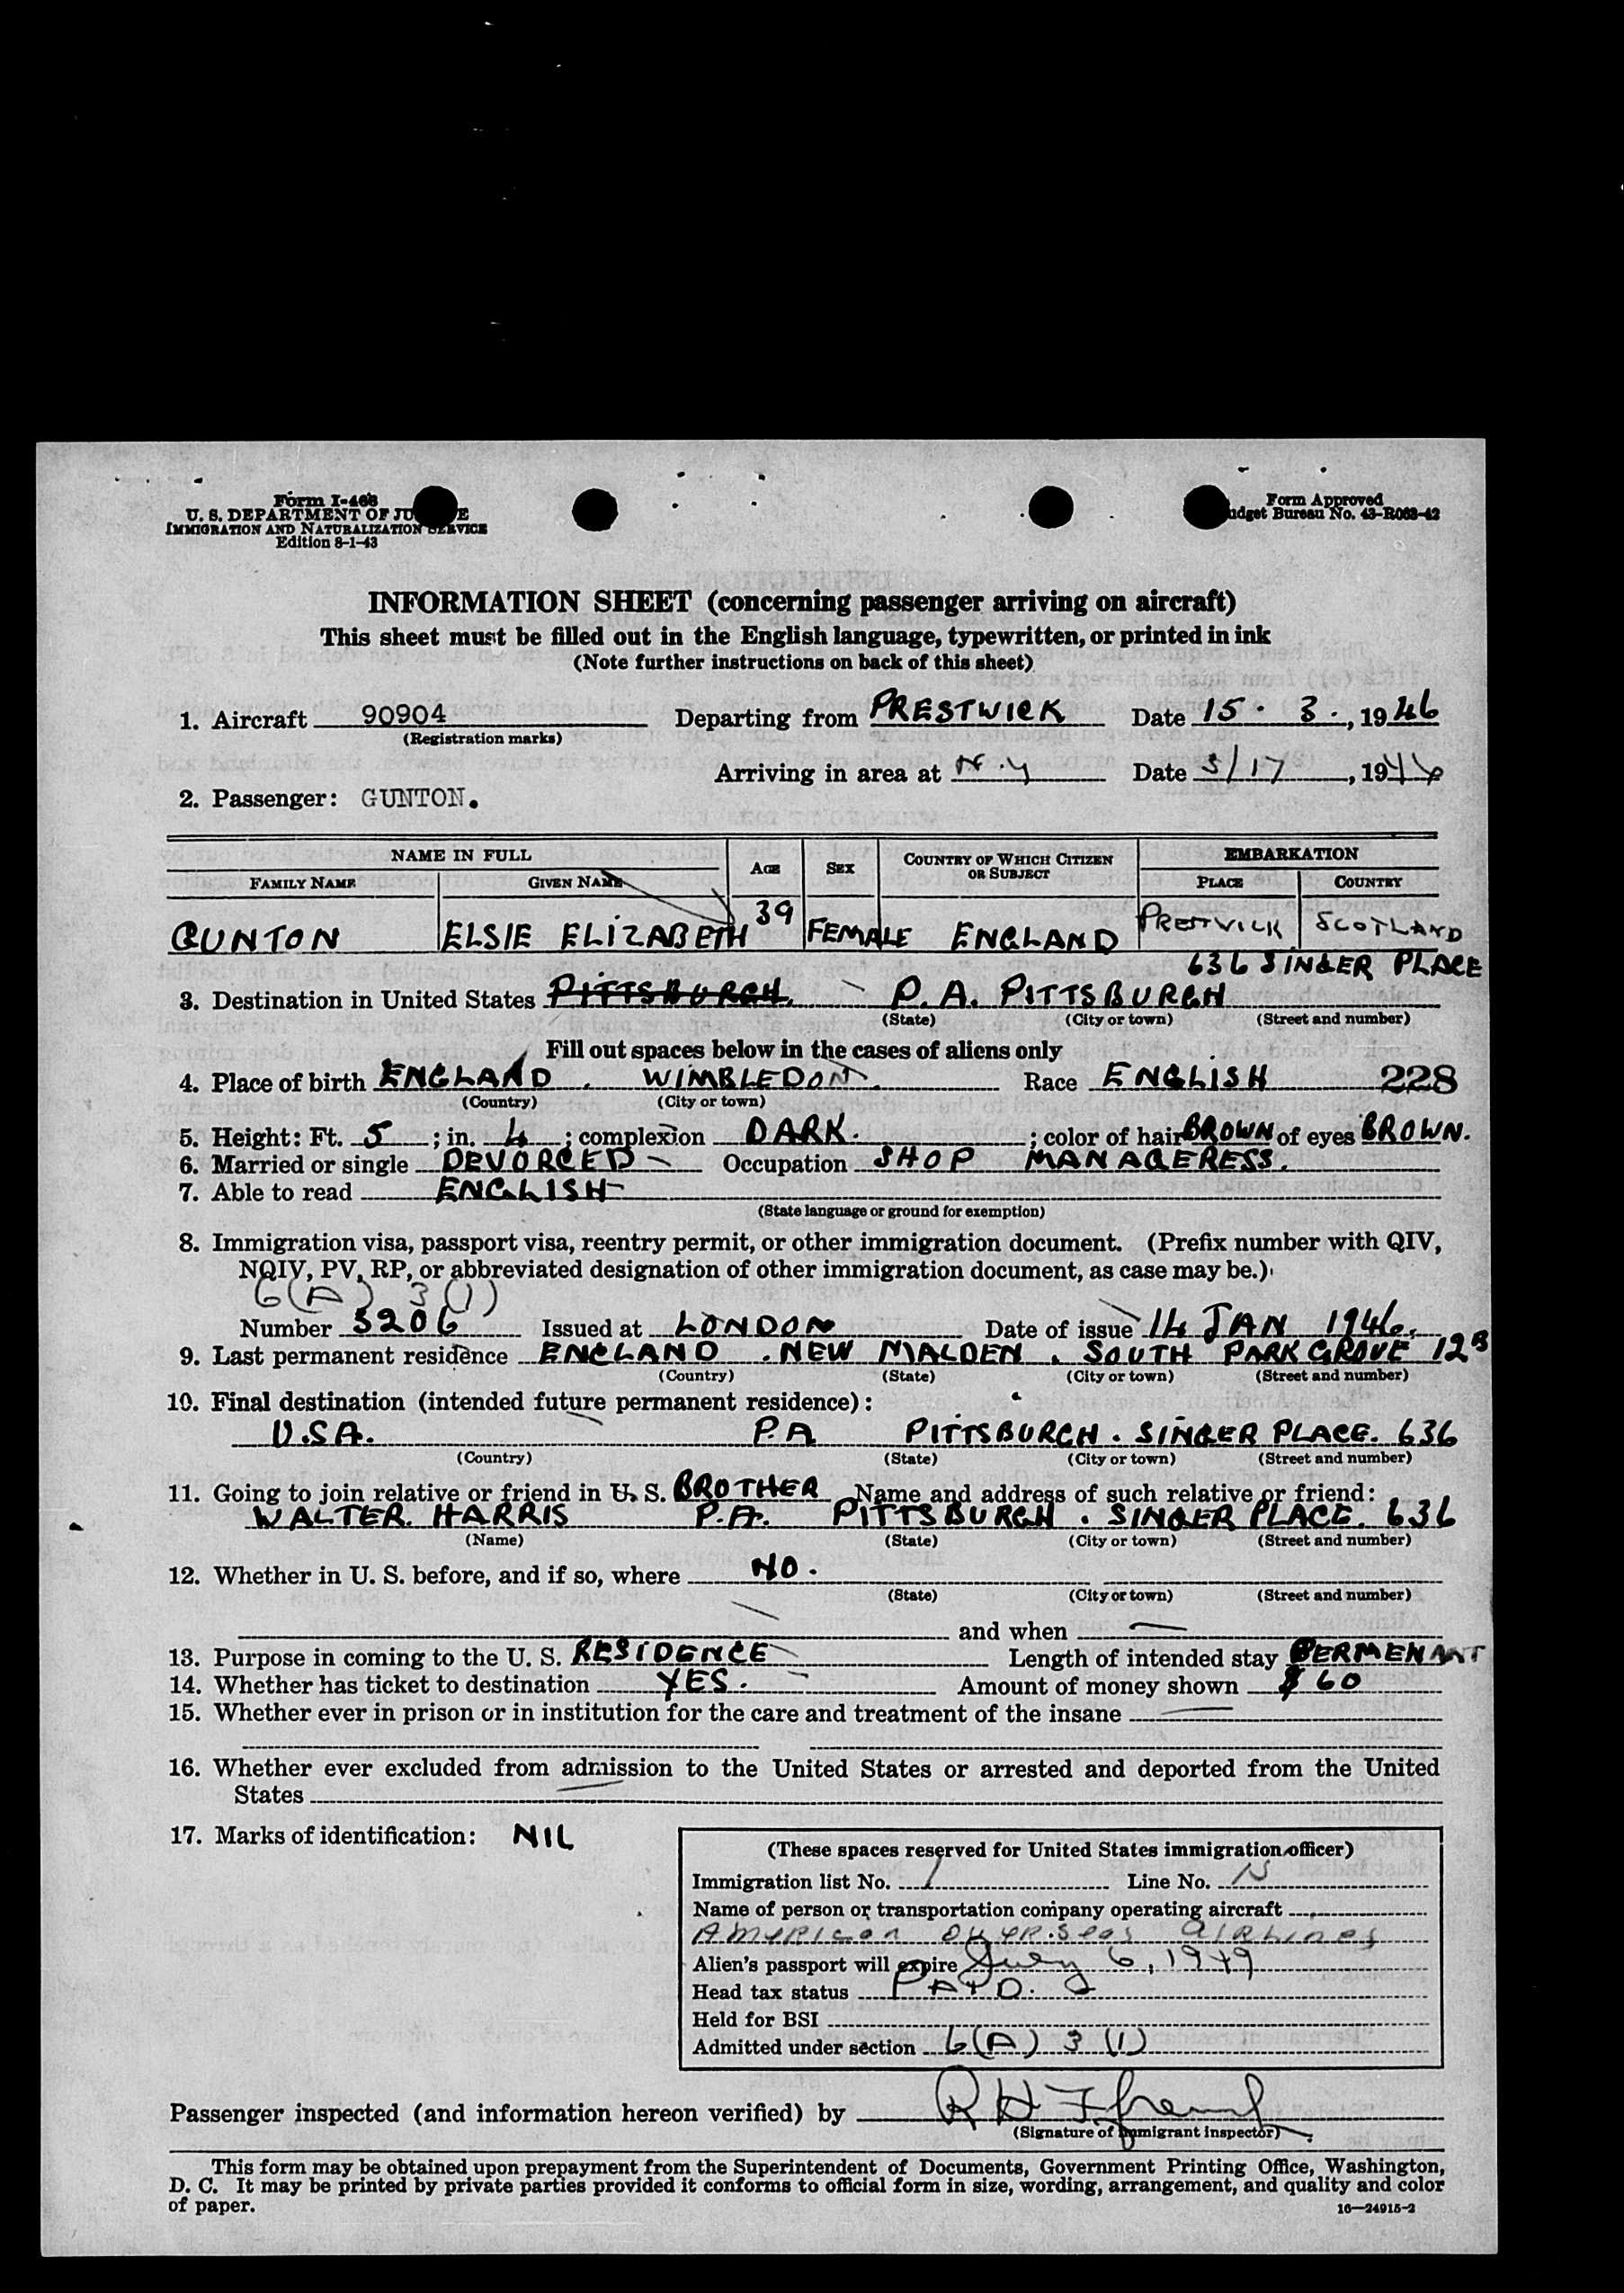 Form I-466
U. S. DEPARTMENT OF JU E
IMMIGRATION AND NATURALIZATION SERVICE
Edition 8-1-43
Form Approved
udget Bureau No. 43-R063-42
INFORMATION SHEET (concerning passenger arriving on aircraft)
This sheet must be filled out in the English language, typewritten, or printed in ink
(Note further instructions on back of this sheet)
1. Aircraft 90904 Departing from PRESTWICK Date 15 . 3 . , 1946
(Registration marks)
Arriving in area at N.Y Date 3/17 , 1946
2. Passenger: GUNTON.
NAME IN FULL AGE SEX COUNTRY OF WHICH CITIZEN OR SUBJECT EMBARKATION
FAMILY NAME GIVEN NAME PLACE COUNTRY
GUNTON ELSIE ELIZABETH 39 FEMALE ENGLAND PRESTWICK SCOTLAND
636 SINGER PLACE
3. Destination in United States PITTSBURGH. P.A. PITTSBURGH
(State) (City or town) (Street and number)
Fill out spaces below in the cases of aliens only
4. Place of birth ENGLAND . WIMBLEDON. Race ENGLISH 228
(Country) (City or town)
5. Height: Ft. 5 ; in. 4 ; complexion DARK. ; color of hair BROWN of eyes BROWN.
6. Married or single DEVORCED Occupation SHOP MANAGERESS.
7. Able to read ENGLISH
(State language or ground for exemption)
8. Immigration visa, passport visa, reentry permit, or other immigration document. (Prefix number with QIV,
NQIV, PV, RP, or abbreviated designation of other immigration document, as case may be.)
6(A) 3(1)
Number 3206 Issued at LONDON Date of issue 14 JAN 1946.
9. Last permanent residence ENGLAND . NEW MALDEN . SOUTH PARK GROVE 123
(Country) (State) (City or town) (Street and number)
10. Final destination (intended future permanent residence):
U.S.A. P.A PITTSBURGH . SINGER PLACE. 636
(Country) (State) (City or town) (Street and number)
11. Going to join relative or friend in U. S. BROTHER Name and address of such relative or friend:
WALTER. HARRIS P.A. PITTSBURGH . SINGER PLACE. 636
(Name) (State) (City or town) (Street and number)
12. Whether in U. S. before, and if so, where NO.
(State) (City or town) (Street and number)
and when —
13. Purpose in coming to the U. S. RESIDENCE Length of intended stay PERMENANT
14. Whether has ticket to destination YES. Amount of money shown $ 60
15. Whether ever in prison or in institution for the care and treatment of the insane —
16. Whether ever excluded from admission to the United States or arrested and deported from the United
States
17. Marks of identification: NIL
(These spaces reserved for United States immigration officer)
Immigration list No. 1 Line No. 15
Name of person or transportation company operating aircraft
American Overseas Airlines
Alien's passport will expire July 6, 1949
Head tax status PAID.
Held for BSI
Admitted under section 6(A) 3 (1)
Passenger inspected (and information hereon verified) by
(Signature of immigrant inspector)
This form may be obtained upon prepayment from the Superintendent of Documents, Government Printing Office, Washington,
D. C. It may be printed by private parties provided it conforms to official form in size, wording, arrangement, and quality and color
of paper.
16—24915-2